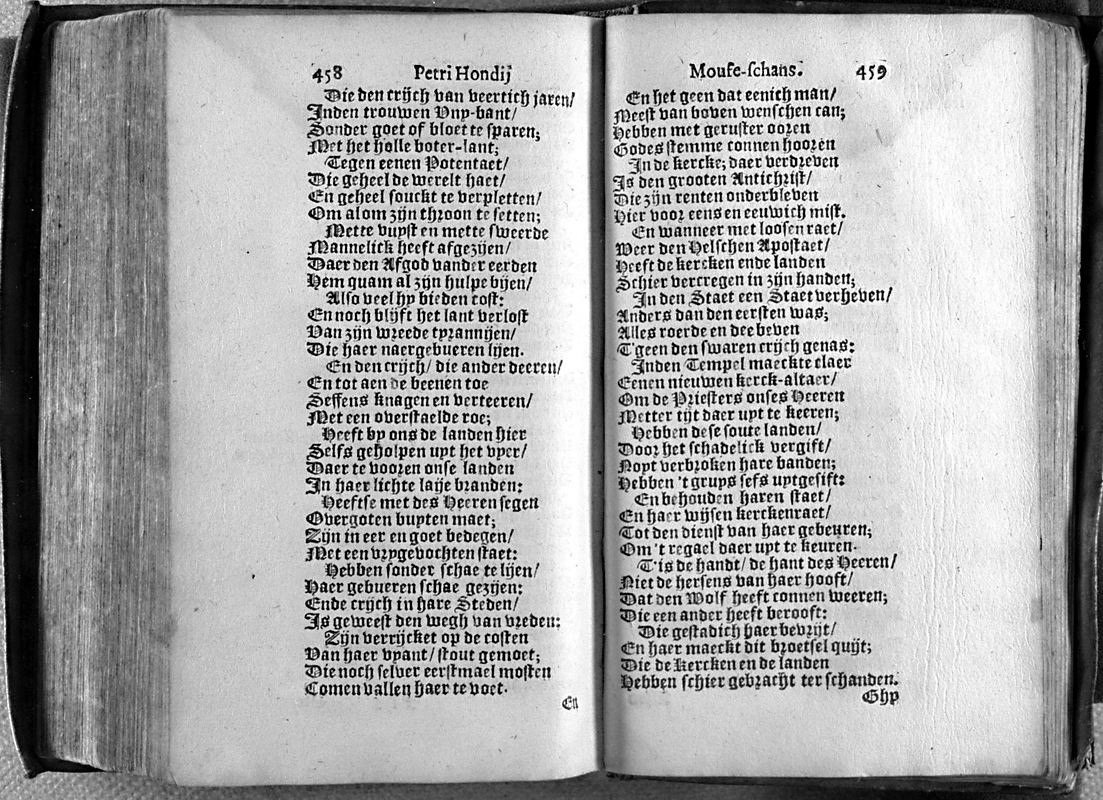 458 Petri Hondij
Die den crijch van veertich jaren/
Inden trouwen Vny-bant/
Sonder goet of bloet te sparen;
Met het holle boter-lant;
Tegen eenen Potentaet/
Die geheel de werelt haet/
En geheel souckt te verpletten/
Om alom zijn throon te setten;
Mette vuyst en mette sweerde
Mannelick heeft afgezijen/
Daer den Afgod vander eerden
Hem quam al zijn hulpe bijen/
Also veel hy bieden cost:
En noch blijft het lant verlost
Van zijn wreede tyrannijen/
Die haer naergebueren lijen.
En den crijch/ die ander deeren/
En tot aen de beenen toe
Seffens knagen en verteeren/
Met een overstaelde roe;
Heeft by ons de landen hier
Selfs geholpen uyt het vyer/
Daer te vooren onse landen
In haer lichte laije branden:
Heeftse met des Heeren segen
Overgoten buyten maet;
Zijn in eer en goet bedegen/
Met een vrygevochten staet:
Hebben sonder schae te lijen/
Haer gebueren schae gezijen:
Ende crijch in hare Steden/
Is geweest den wegh van vreden:
Zijn verrijcket op de costen
Van haer vyant/ stout gemoet;
Die noch selver eerstmael mosten
Comen vallen haer te voet.
En
Mouse-schans. 459
En het geen dat eenich man/
Meest van boven wenschen can;
Hebben met geruster ooren
Godes stemme connen hooren
In de kercke; daer verdreven
Is den grooten Antichrist/
Die zijn renten onderbleven
Hier voor eens en eeuwich mist.
En wanneer met loosen raet/
Weer den Helschen Apostaet/
Heeft de kercken ende landen
Schier vercregen in zijn handen;
In den Staet een Staet verheven/
Anders dan den eersten was;
Alles roerde en dee beven
T'geen den swaren crijch genas:
Inden Tempel maeckte claer
Eenen nieuwen kerck-altaer/
Om de Priesters onses Heeren
Metter tijt daer uyt te keeren;
Hebben dese soute landen/
Door het schadelick vergift/
Noyt verbroken hare banden;
Hebben 't gruys sefs uytgesift:
En behouden haren staet/
En haer wijsen kerckenraet/
Tot den dienst van haer gebeuren;
Om 't regael daer uyt te keuren.
T'is de handt/ de hant des Heeren/
Niet de hersens van haer hooft/
Dat den Wolf heeft connen weeren;
Die een ander heeft berooft:
Die gestadich haer bevrijt/
En haer maeckt dit broetsel quijt;
Die de Kercken en de landen
Hebben schier gebracht ter schanden.
Ghy